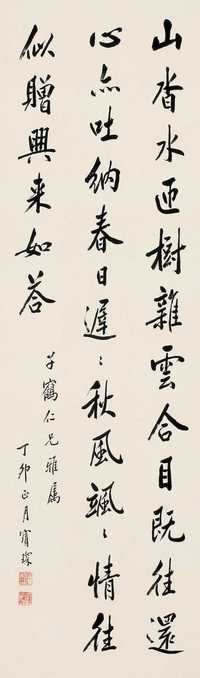 山沓水匝樹雜雲合目既往還
心亦吐納春日遲〻秋風颯〻情往
似贈興来如答
子鶴仁兄雅屬
丁卯正月寶琛